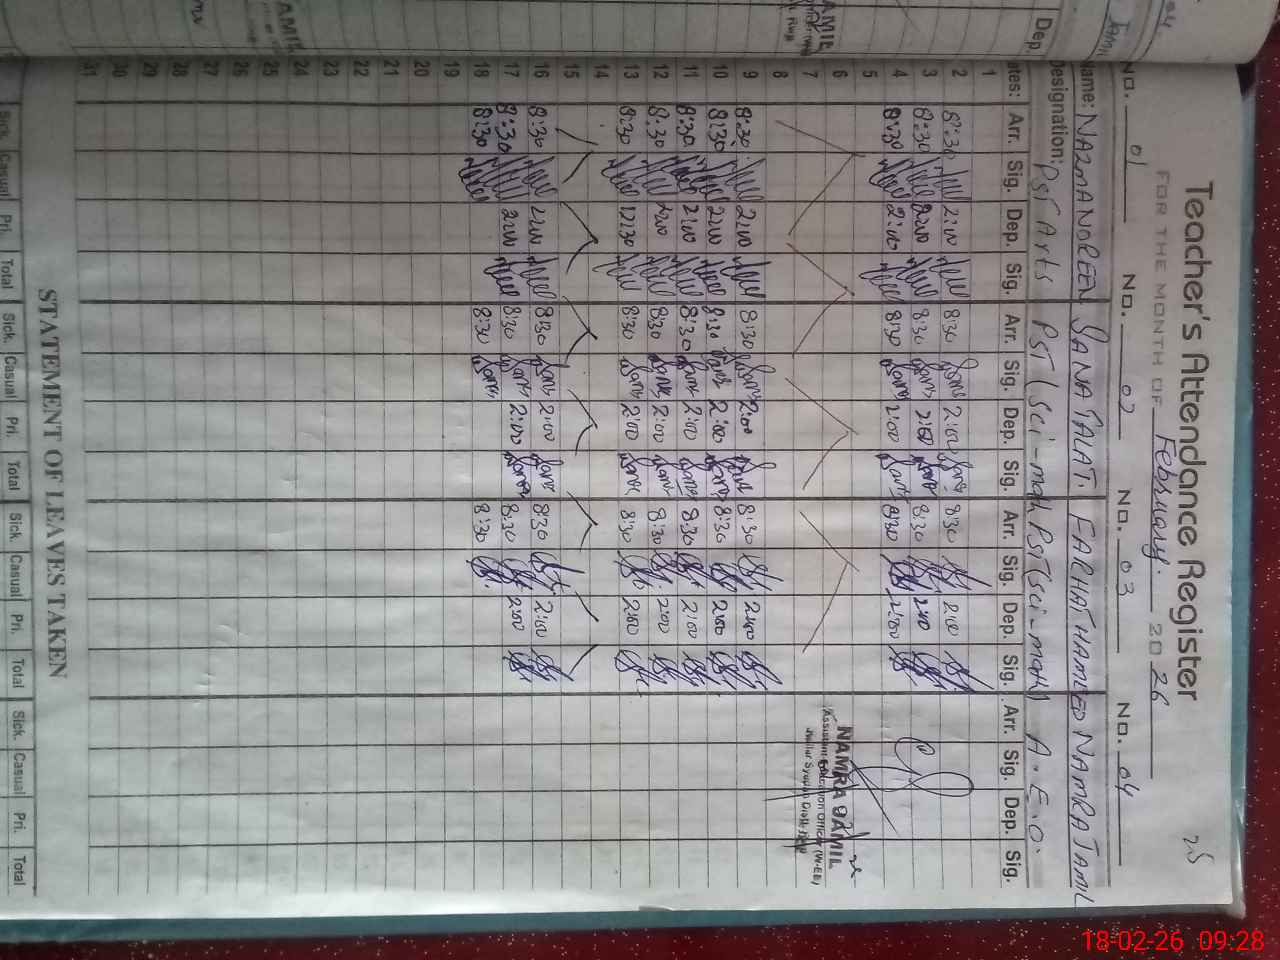 Teacher's Attendance Register
25
FOR THE MONTH OF February. 2026
No. 01 No. 02 No. 03 No. 04
Name: NAZMA NOREEN SANA TALAT. FARHAT HAMEED NAMRA JAMIL
Designation: PST Arts PST (Sci-math) PST (sci-math) A.E.O.
Dates: Arr. Sig. Dep. Sig. Arr. Sig. Dep. Sig. Arr. Sig. Dep. Sig. Arr. Sig. Dep. Sig.
1
2 8:30 2:00 8:30 Sana 2:00 Sana 8:30 2:00
3 8:30 2:00 8:30 Sana 2:00 Sana 8:30 2:00
4 8:30 2:00 8:30 Sana 2:00 Sana 8:30 2:00
5
6
7
8
NAMRA JAMIL
Assistant Education Officer (W-EE)
9 8:30 2:00 8:30 Sana 2:00 Sana 8:30 2:00
10 8:30 2:00 8:30 Sana 2:00 Sana 8:30 2:00
11 8:30 2:00 8:30 Sana 2:00 Sana 8:30 2:00
12 8:30 2:00 8:30 Sana 2:00 Sana 8:30 2:00
13 8:30 12:30 8:30 Sana 2:00 Sana 8:30 2:00
14
15
16 8:30 2:00 8:30 Sana 2:00 Sana 8:30 2:00
17 8:30 2:00 8:30 Sana 2:00 Sana 8:30 2:00
18 8:30 8:30 Sana 8:30
19
20
21
22
23
24
25
26
27
28
29
30
31
STATEMENT OF LEAVES TAKEN
Sick. Casual Pri. Total Sick. Casual Pri. Total Sick. Casual Pri. Total Sick. Casual Pri. Total
18-02-26 09:28